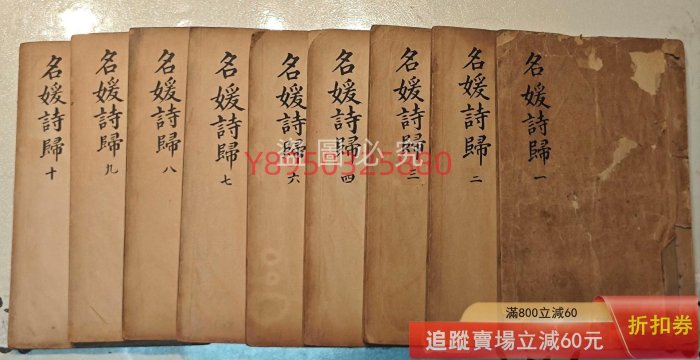 名媛詩歸 一
名媛詩歸 二
名媛詩歸 三
名媛詩歸 四
名媛詩歸 六
名媛詩歸 七
名媛詩歸 八
名媛詩歸 九
名媛詩歸 十
盜圖必究
Y8950325880
滿800立減60
追蹤賣場立減60元
折扣券